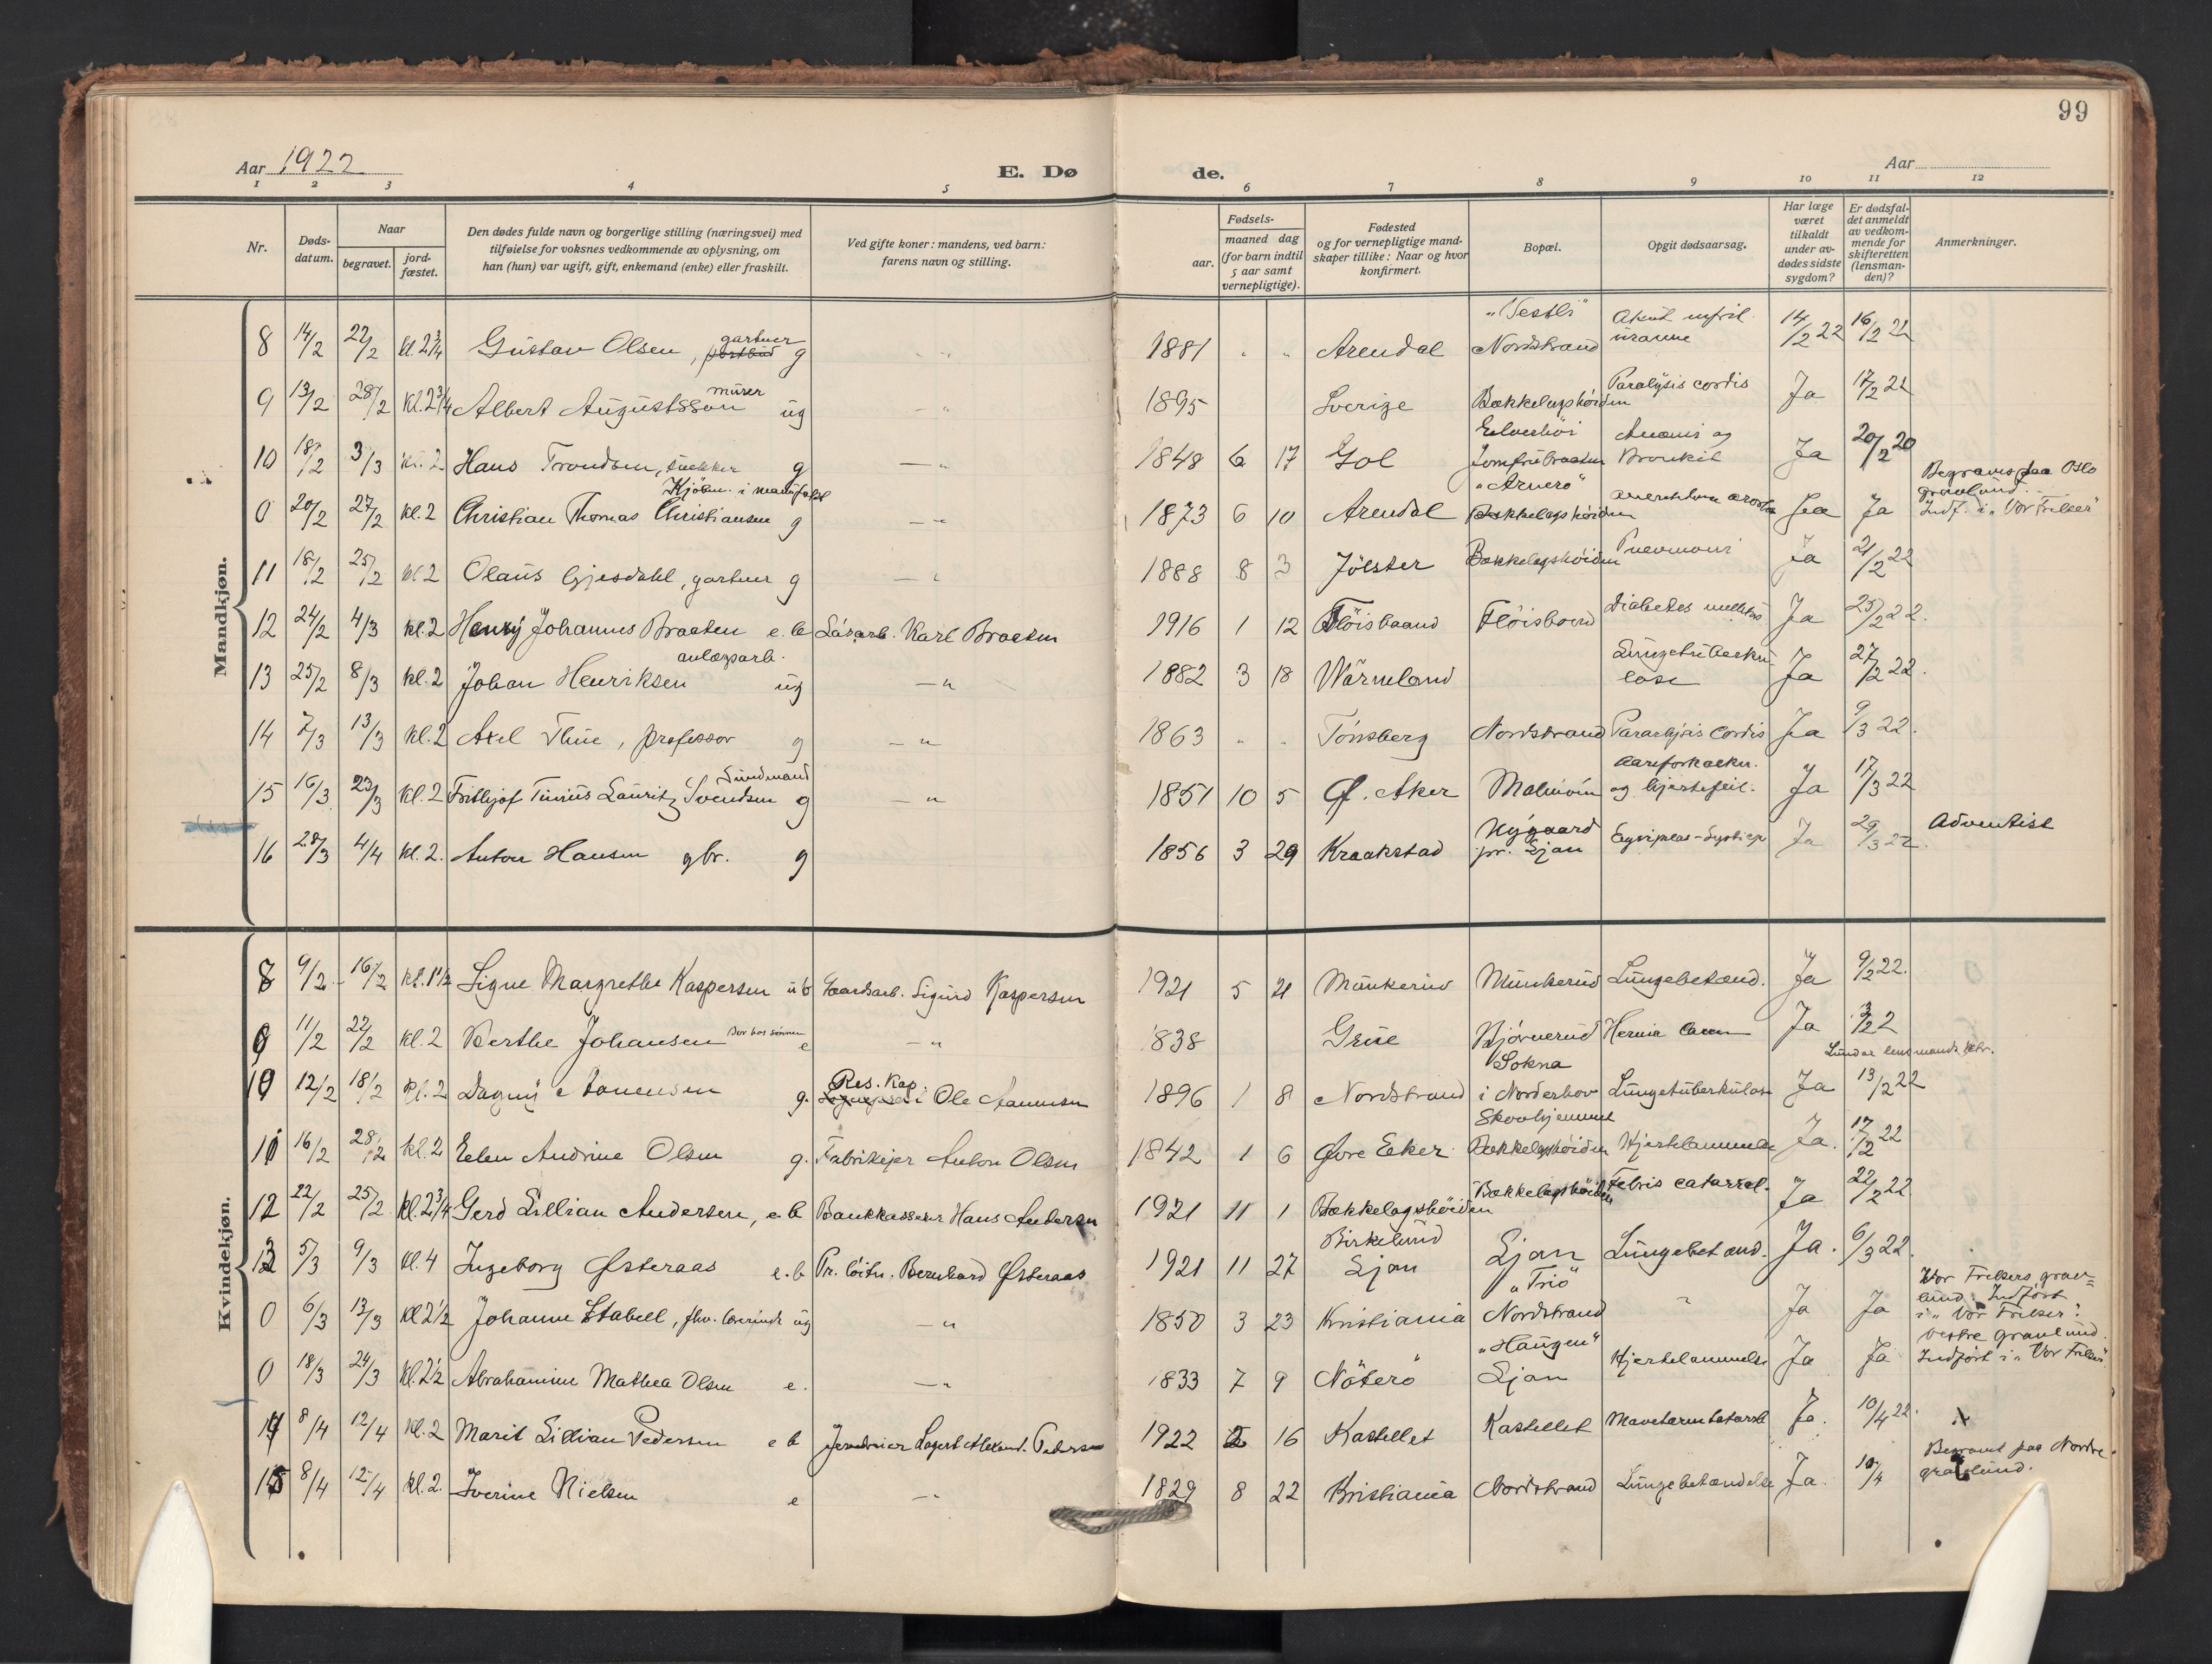 99
Aar 1922
E. Dø
de.
Aar
1 2 3 4 5 6 7 8 9 10 11 12
Nr.
Døds-
datum.
Naar
begravet.
jord-
fæstet.
Den dødes fulde navn og borgerlige stilling (næringsvei) med
tilføielse for voksnes vedkommende av oplysning, om
han (hun) var ugift, gift, enkemand (enke) eller fraskilt.
Ved gifte koner: mandens, ved barn:
farens navn og stilling.
Fødsels-
aar.
maaned dag
(for barn indtil
5 aar samt
vernepligtige).
Fødested
og for vernepligtige mand-
skaper tillike: Naar og hvor
konfirmert.
Bopæl.
Opgit dødsaarsag.
Har læge
været
tilkaldt
under av-
dødes sidste
sygdom?
Er dødsfal-
det anmeldt
av vedkom-
mende for
skifteretten
(lensman-
den)?
Anmerkninger.
Mandkjøn.
8 14/2 22/2 kl 2 3/4 Gustav Olsen, gartner g 1881 Arendal "Vestli" Nordstrand Akut 14/2 22 16/2 22
9 13/2 28/2 kl. 2 3/4 Albert Augustsson murer ug 1895 Sverige Bækkelagshöiden Paralysis cordis Ja 17/2 22
10 18/2 3/3 kl. 2 Hans Trondsen, snekker g 1848 6 17 Gol Jomfrubraaten Anæmi og Bronkit Ja 20/2 20
0 20/2 27/2 kl. 2 Christian Thomas Christiansen Kjöbm. i manufakt g 1873 6 10 Arendal "Arnero" Bækkelagshöiden Ja Ja Begraves paa Oslo gravlund. Indf. i "Vor Frelser"
11 18/2 25/2 kl 2 Olaus Gjesdahl, gartner g 1888 8 3 Jölster Bækkelagshöiden Pneumoni Ja 21/2 22
12 24/2 4/3 kl. 2 Henry Johannes Braaten e. b Karl Braaten 1916 1 12 Flöisbaand Flöisbaand Diabetes mellitus Ja 25/2 22.
13 25/2 8/3 kl. 2 Johan Henriksen anlægsarb. ug 1882 3 18 Wärmland Lungetuberkulose Ja 27/2 22.
14 7/3 13/3 kl. 2 Axel Thue, professor g 1863 Tönsberg Nordstrand Pararlysis Cordis Ja 9/3 22.
15 16/3 23/3 kl. 2 Frithjof Tinius Lauritz Svendsen g 1851 10 5 Ø. Aker Malmöün Aareforkalkn. og hjertefeil. Ja 17/3 22
16 28/3 4/4 kl. 2. Anton Hansen gbr. g 1856 3 29 Kraakstad Nygaard pr. Ljan Ja 29/3 22. Adventist
Kvindekjøn.
8 9/2 16/2 kl. 1 1/2 Signe Margrethe Kaspersen u b Gaardsarb. Sigurd Kaspersen 1921 5 21 Munkerud Munkerud Lungebetænd. Ja 9/2 22.
9 11/2 22/2 kl. 2 Berthe Johansen Bor hos sönnen e 1838 Grue Bjørnerud Hernia Ja
10 12/2 18/2 kl. 2 Dagny Aanensen g. Res. Kap. Ole Aanensen 1896 1 8 Nordstrand Sokna i Norderhov Lungetuberkulose Ja 13/2 22
11 16/2 28/2 kl. 2 Elen Andrine Olsen g. Fabrikejer Anton Olsen 1842 1 6 Øvre Eeker Skovhjemmet Bækkelagshöiden Hjertelammelse Ja. 17/2 22
12 22/2 25/2 kl. 2 3/4 Gerd Lillian Andersen, e. b Bankkasserer Hans Andersen 1921 11 1 Bækkelagshöiden Bækkelagshöiden Febris catarral. Ja 22/2 22
13 5/3 9/3 kl. 4 Ingeborg Østeraas e. b Pr. löitn. Bernhard Østeraas 1921 11 27 Birkelund Ljan Ljan Lungebetænd. Ja. 6/3 22.
0 6/3 13/3 kl 2 1/2 Johanne Stabell, fhv. lærerinde ug 1850 3 23 Kristiania "Trio" Nordstrand Ja Ja Vor Frelsers gravlund. Indført i "Vor Frelser".
0 18/3 24/3 kl. 2 1/2 Abrahamine Mathea Olsen e. 1833 7 9 Nöterö "Haugen" Ljan Hjertelammelse Ja Ja Vestre gravlund. Indført i "Vor Frelser".
14 8/4 12/4 kl. 2 Marit Lillian Pedersen e b 1922 2 16 Kastellet Kastellet Mavetarmkatarrh Ja. 10/4 22.
15 8/4 12/4 kl. 2. Iverine Nielsen e 1829 8 22 Kristiania Nordstrand Lungebetændelse Ja. 10/4 Begravet paa Nordre gravlund.